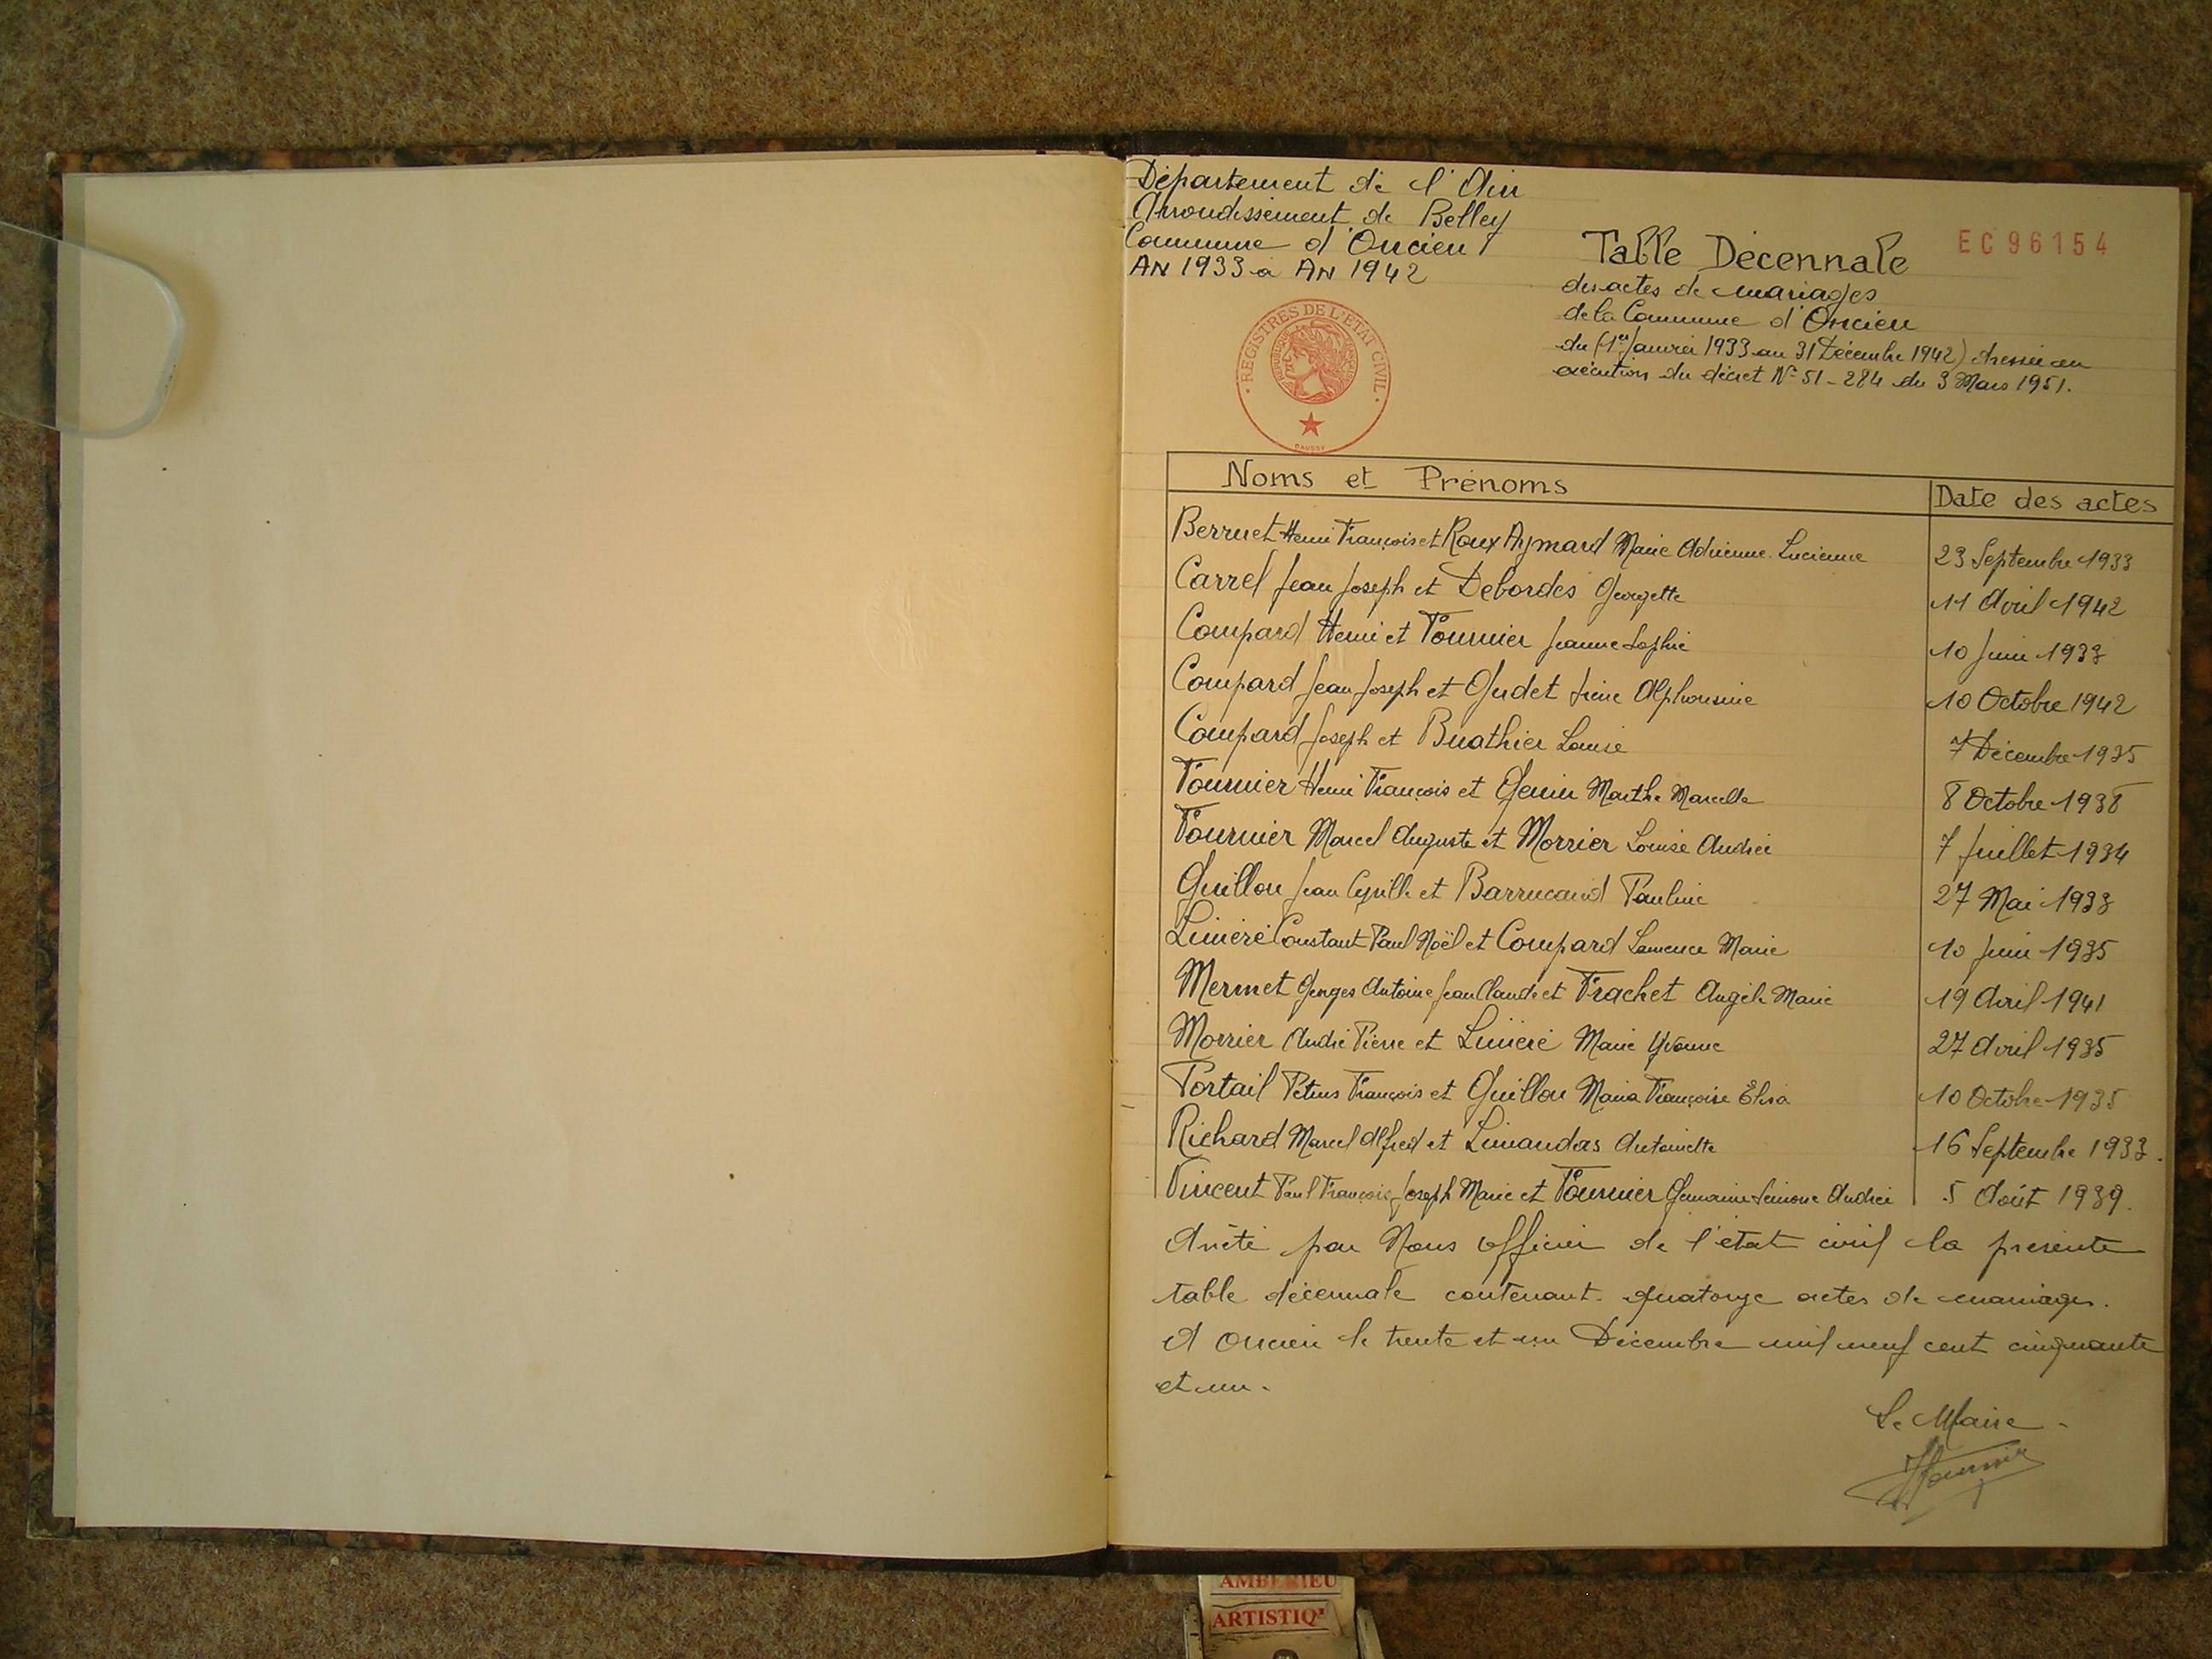 Département de l'Ain
Arrondissement de Belley
Commune d'Oncieu
AN 1933 à AN 1942
Table Décennale
EC96154
des actes de mariages
de la Commune d'Oncieu
du (1er Janvier 1933 au 31 Décembre 1942) dressée en
exécution du décret N° 51-284 du 3 Mars 1951.
REGISTRES DE L'ETAT CIVIL
Noms et Prénoms Date des actes
Berruet Henri François et Roux Aymard Marie Adrienne Lucienne 23 Septembre 1933
Carrel Jean Joseph et Debordes Georgette 11 Avril 1942
Compard Henri et Fournier Jeanne Sophie 10 Juin 1933
Compard Jean Joseph et Gudet Irène Alphonsine 10 Octobre 1942
Compard Joseph et Buathier Louise 7 Décembre 1935
Fournier Henri François et Genin Marthe Marcelle 8 Octobre 1938
Fournier Marcel Auguste et Morrier Louise Andrée 7 Juillet 1934
Guillon Jean Cyrille et Barrucand Pauline 27 Mai 1933
Linieré Constant Paul Noël et Compard Laurence Marie 10 Juin 1935
Mermet Georges Antoine Jean Claude et Trachet Angèle Marie 19 Avril 1941
Morrier André Pierre et Linieré Marie Yvonne 27 Avril 1935
Portail Petrus François et Guillon Maria Françoise Élisa 10 Octobre 1935
Richard Marcel Alfred et Limandas Antoinette 16 Septembre 1933.
Vincent Paul François Joseph Marie et Fournier Germaine Simone Andrée 5 Août 1939.
Arrêté par Nous officier de l'état civil la présente
table décennale contenant quatorze actes de mariages.
A Oncieu le trente et un Décembre mil neuf cent cinquante
et un.
Le Maire
Fournier
AMBERIEU
ARTISTIQ